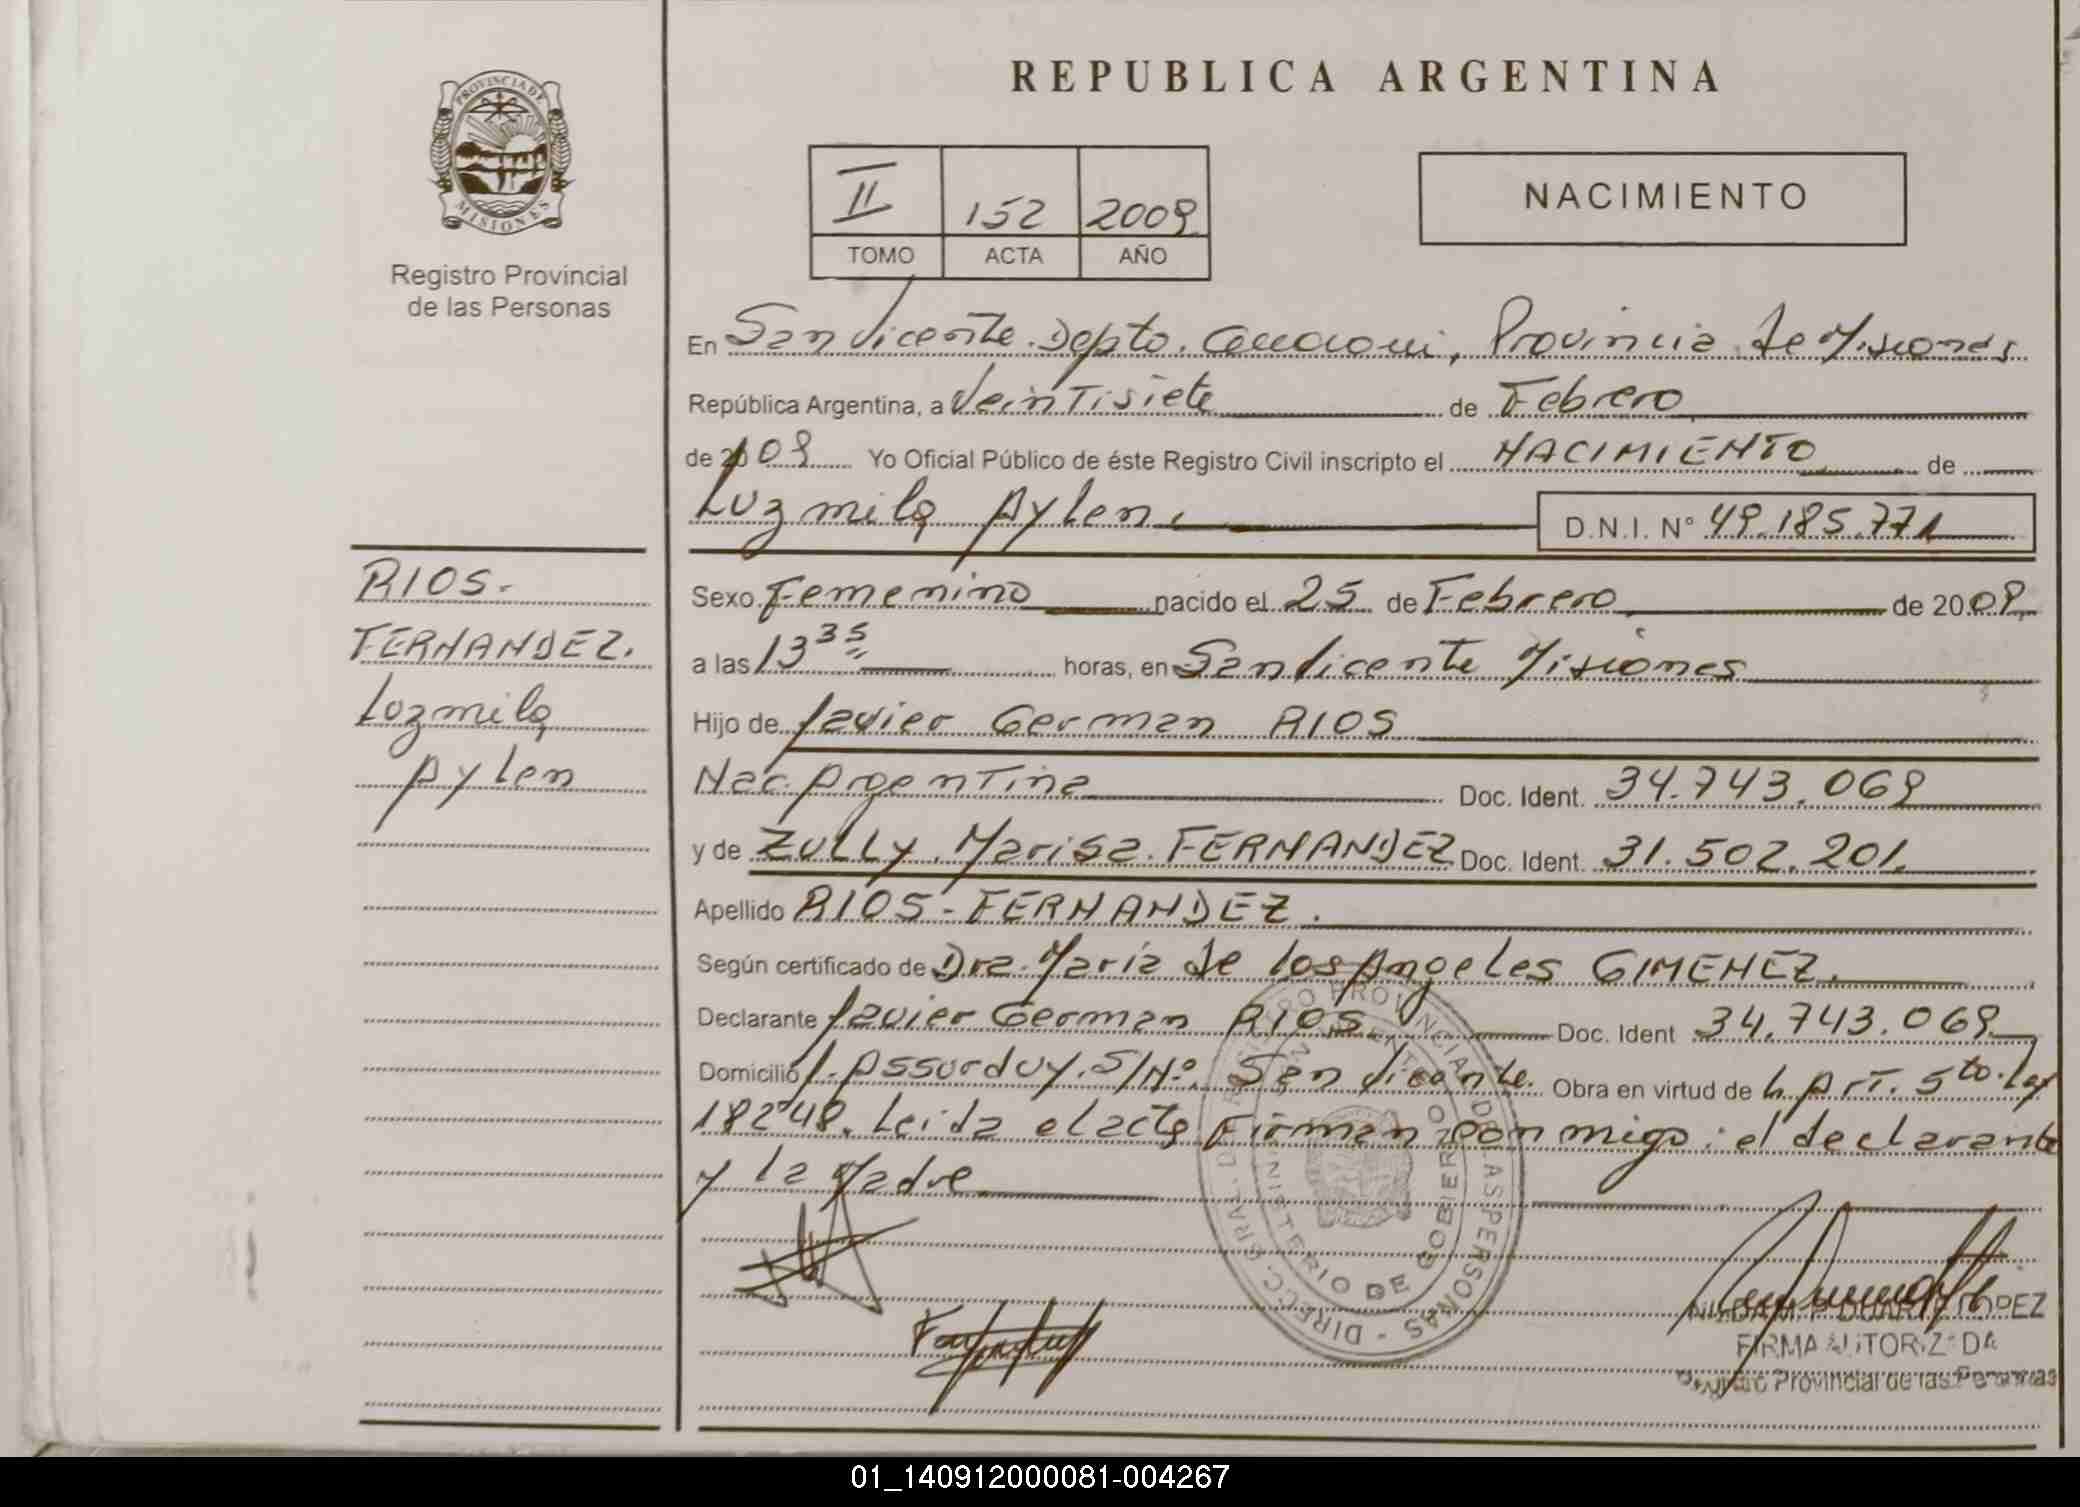 PROVINCIA DE
MISIONES
Registro Provincial
de las Personas
REPUBLICA ARGENTINA
II 152 2009
TOMO ACTA AÑO
NACIMIENTO
En San Vicente. Depto. Guaraní, Provincia de Misiones
República Argentina, a Veintisiete de Febrero
de 2009 Yo Oficial Público de éste Registro Civil inscripto el NACIMIENTO de
Luzmila Aylen.
D.N.I. N° 49.185.771
RIOS-
FERNANDEZ.
Luzmila
Aylen
Sexo Femenino nacido el 25 de Febrero de 2009
a las 13 35 horas, en San Vicente Misiones
Hijo de Javier German RIOS
Nac. Argentina Doc. Ident. 34.743.069
y de ZULLY Marisa FERNANDEZ Doc. Ident. 31.502.201.
Apellido RIOS-FERNANDEZ.
Según certificado de Dra. María de los Angeles GIMENEZ.
Declarante Javier German RIOS Doc. Ident 34.743.069
Domicilio J. Assurduy. S/N°. San Vicente. Obra en virtud de L. Art. 5to. Ley
18248. Leida el acta Firman conmigo: el declarante
y la Madre
MINISTERIO DE GOBIERNO
DIRECC. GRAL. DE LAS PERSONAS
LOPEZ
FIRMA AUTORIZADA
Registro Provincial de las Personas
01_140912000081-004267